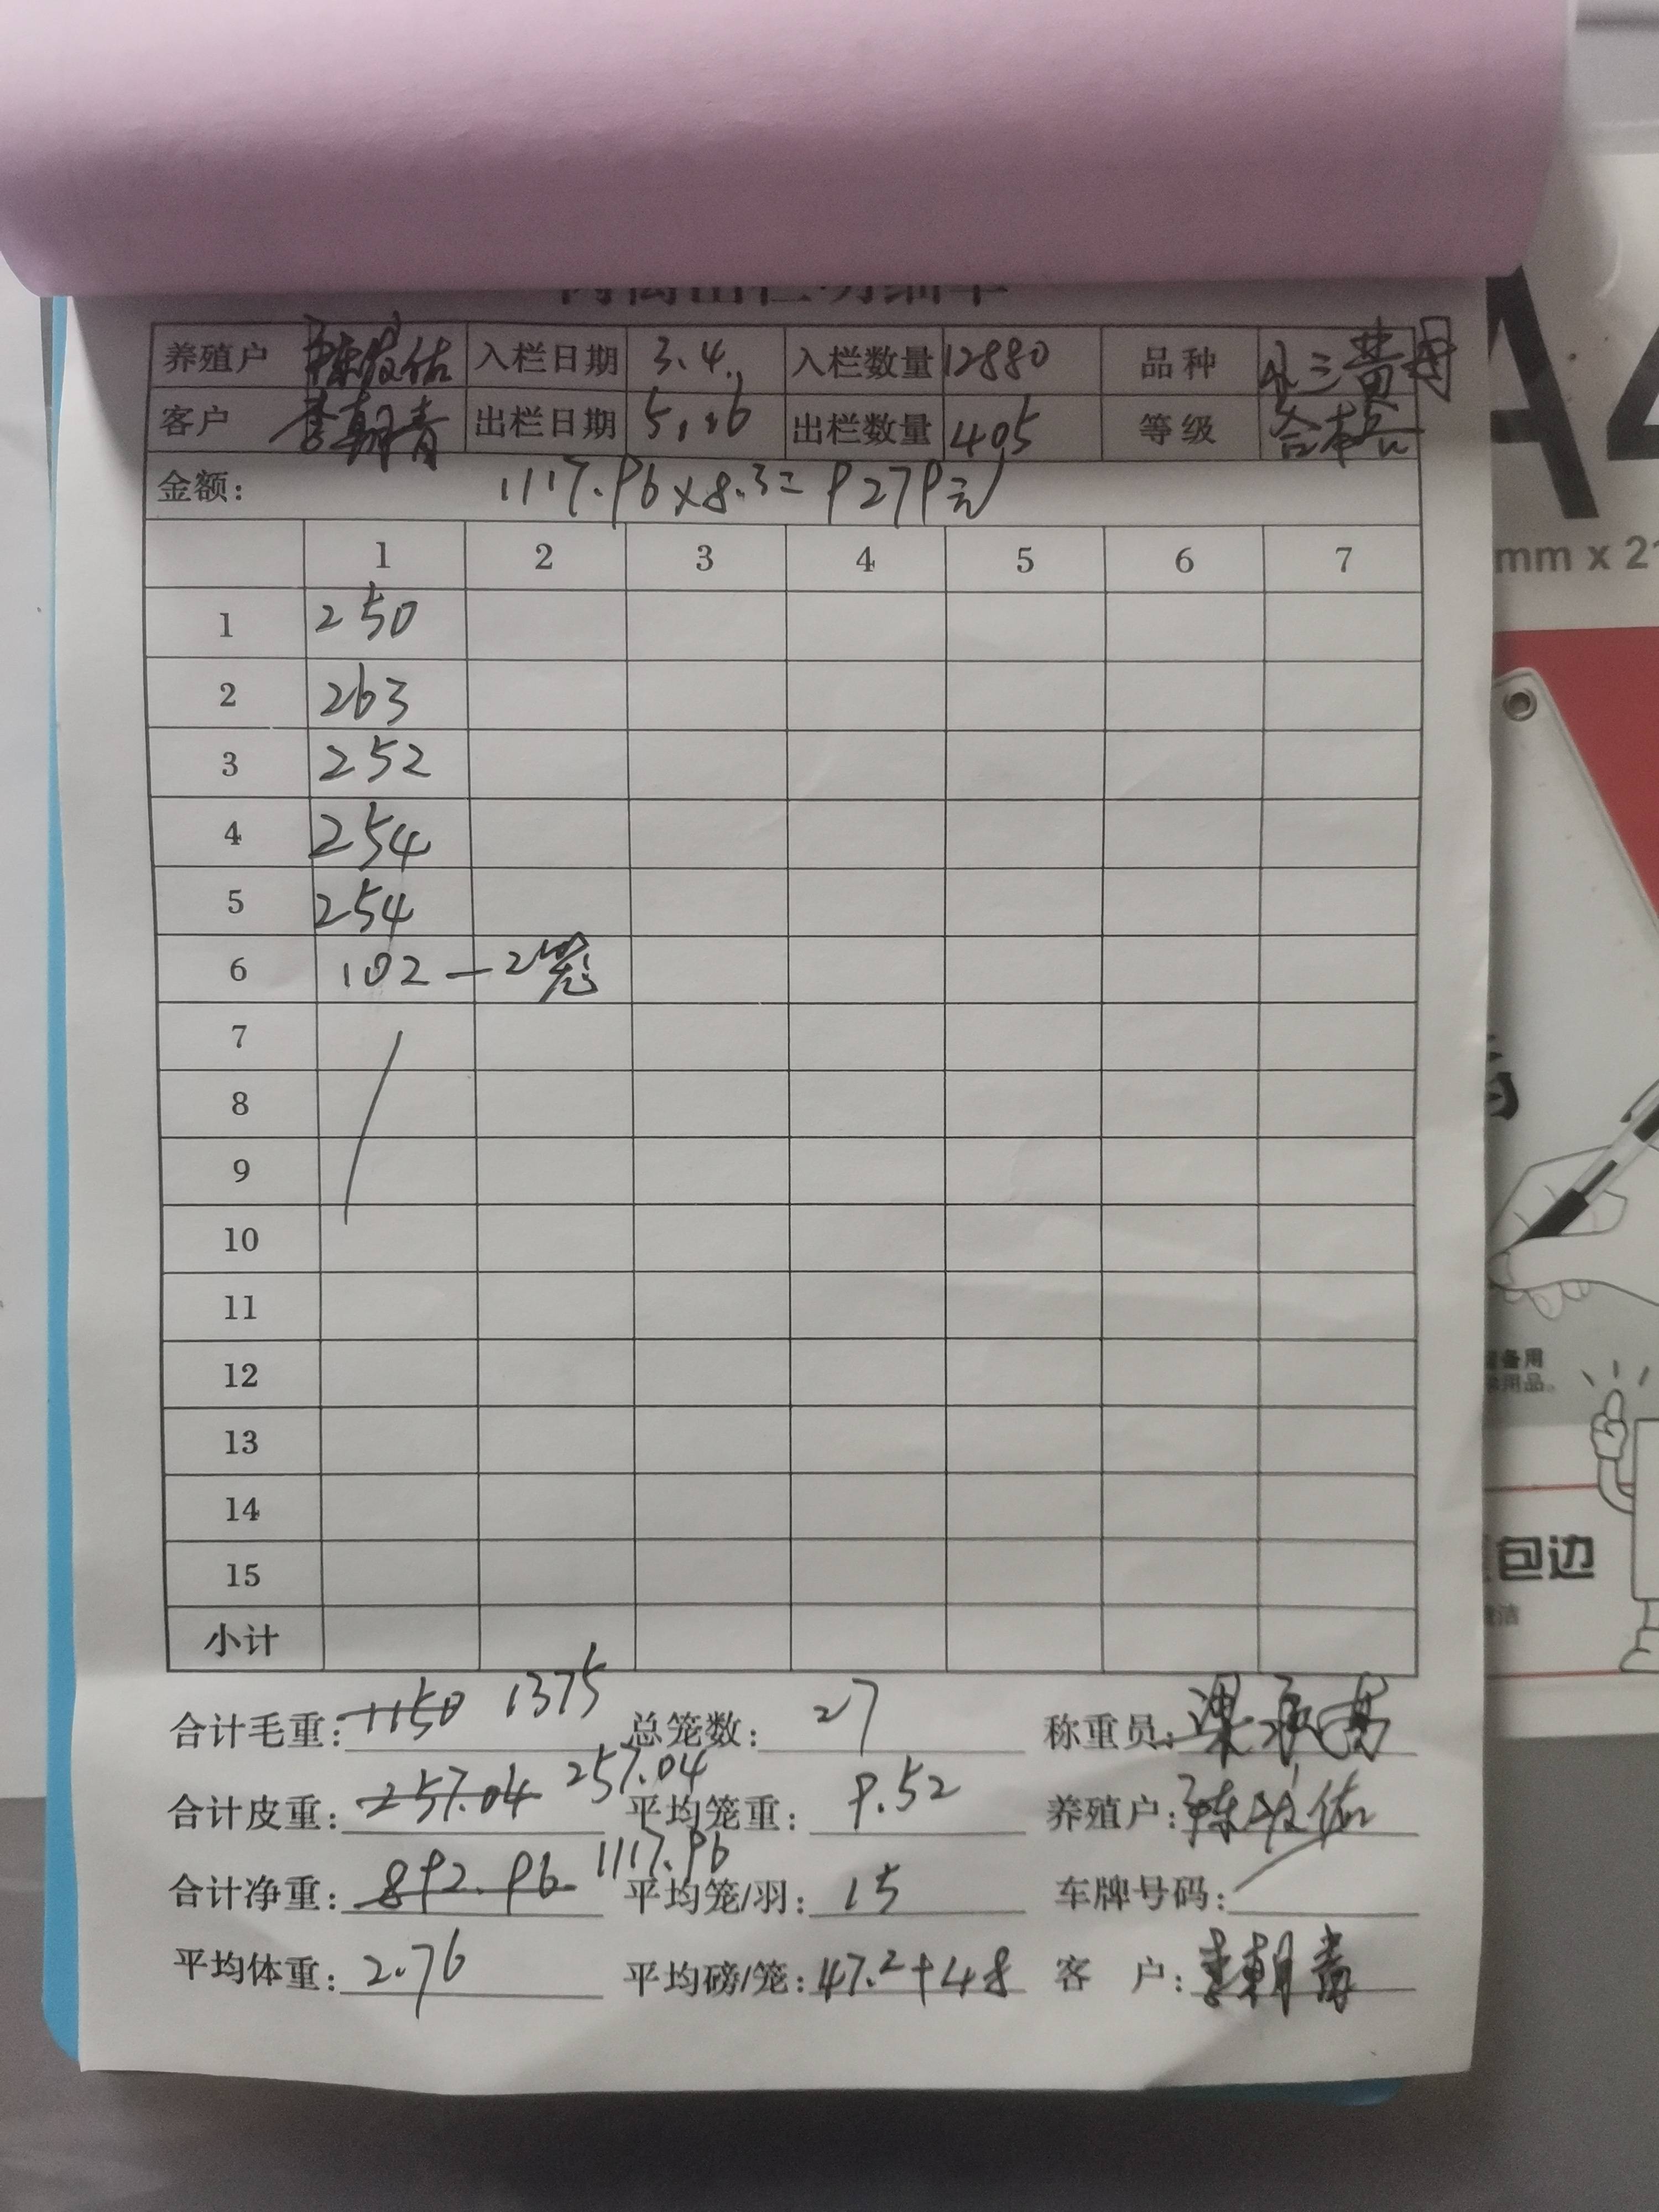 养殖户 入栏日期 3.4. 入栏数量 12880 品种 三黄母
客户 李朝青 出栏日期 5.16 出栏数量 405 等级 合格
金额: 1117.96×8.3= 9279元
1 2 3 4 5 6 7
1 250
2 263
3 252
4 254
5 254
6 102 — 2笼
7
8
9
10
11
12
13
14
15
小计
合计毛重: 1150 1375 总笼数: 27 称重员:
合计皮重: 257.04 257.04 平均笼重: 9.52 养殖户:
合计净重: 892.96 1117.96 平均笼/羽: 15 车牌号码:
平均体重: 2.76 平均磅/笼: 47.2+48 客 户: 李朝青
A4
mm x 2
备用
用品。
包边
洁